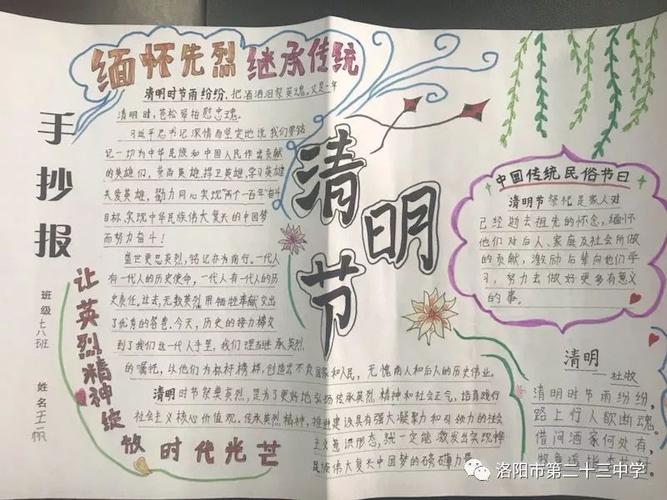 缅怀先烈 继承传统
手抄报
班级 七八班
姓名 王一帆
清明时节雨纷纷,把酒洒泪祭英魂,又是一年
清明时,苍松翠柏慰忠魂。
习近平总书记深情而坚定地说,我们要铭
记一切为中华民族和中国人民作出贡献
的英雄们,崇尚英雄,捍卫英雄,学习英雄
关爱英雄,勠力同心实现"两个一百年"奋斗
目标,实现中华民族伟大复兴的中国梦
而努力奋斗!
盛世更思英烈,铭记亦为前行。一代人
有一代人的历史使命,一代人有一代人的历
史责任。过去,无数英烈用牺牲奉献交出
了优秀的答卷,今天,历史的接力棒交
到了我们这一代人手里,我们理当继承英烈
的嘱托,以他们为标杆榜样,创造出不负国家和人民,无愧前人和后人的历史伟业。
清明时节祭奠英烈,是为了更好地弘扬传承英烈精神和社会正气,培育践行
社会主义核心价值观。传承英烈精神,推进建设具有强大凝聚力和引领力的社会
主义意识形态,就一定能激发出实现中华
民族伟大复兴中国梦的磅礴力量
让英烈精神绽放时代光芒
清明节
中国传统民俗节日
清明节祭祀是家人对
已经逝去祖先的怀念,缅怀
他们对后人、家庭及社会所做
的贡献,激励后辈向他们学
习,努力去做好更多有意义
的事。
清明
杜牧
清明时节雨纷纷,
路上行人欲断魂。
借问酒家何处有,
洛阳市第二十三中学